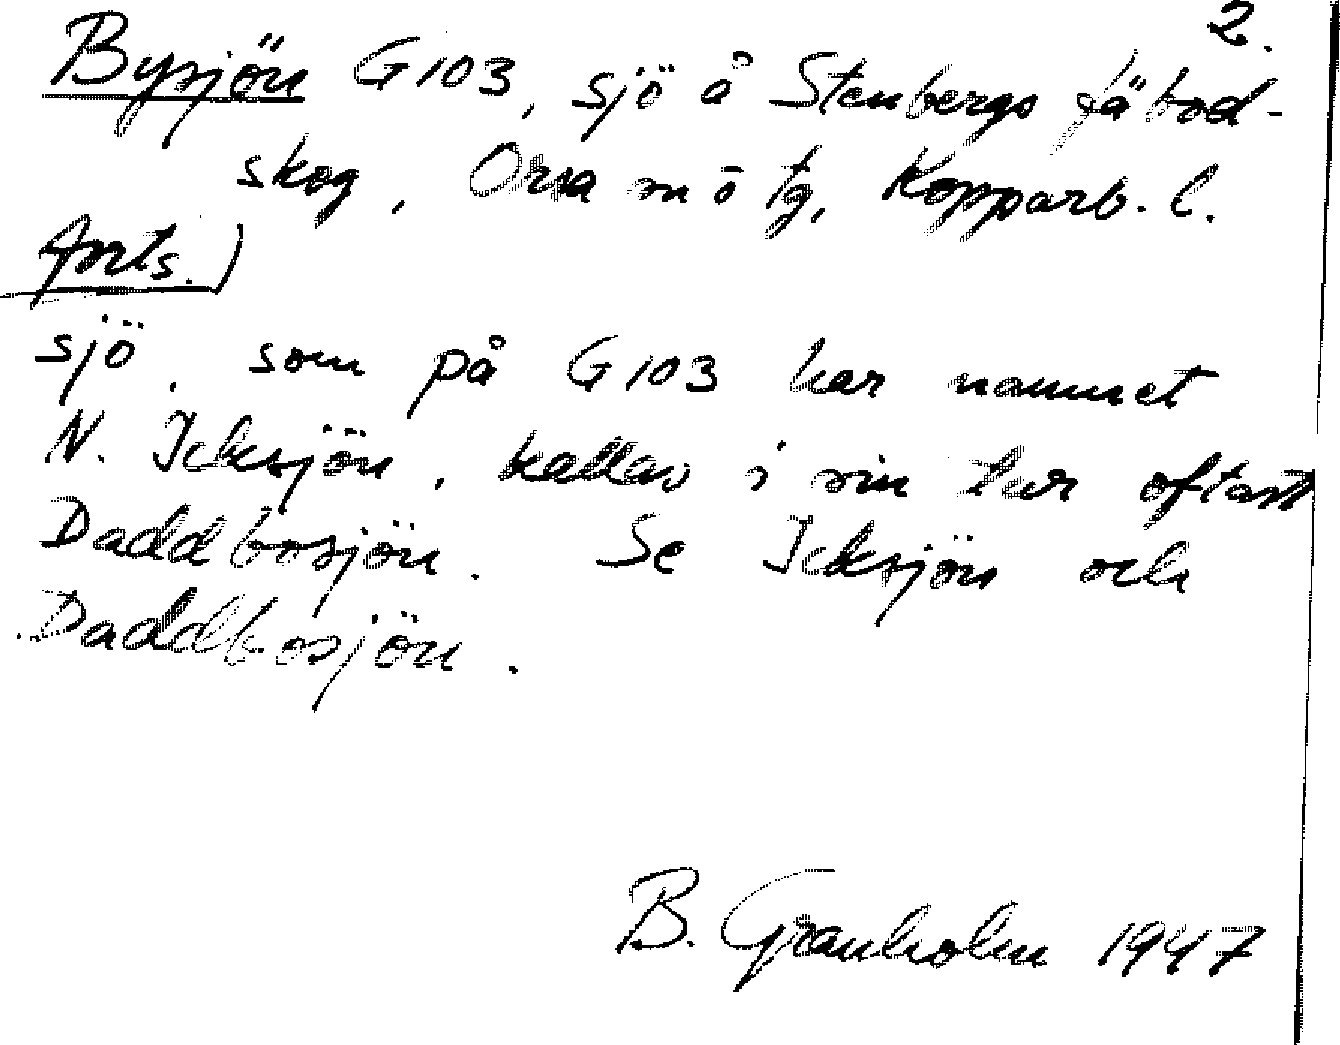 2.
Bysjön G103, sjö å Stenbergs fäbod-
skog, Orsa m o tg, Kopparb. l.
Forts.)
sjö, som på G103 har namnet
N. Icksjön, kallas i sin tur oftast
Daddbosjön. Se Icksjön och
Daddbosjön.
B. Granholm 1947